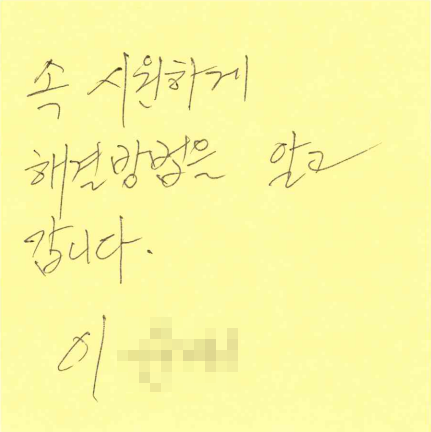 속 시원하게
해결방법을 알고
갑니다.
이